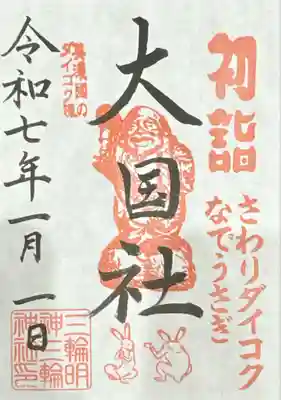 初詣
さわりダイコク
なでうさぎ
大国社
令和七年一月一日
三輪明
神三輪
神社印